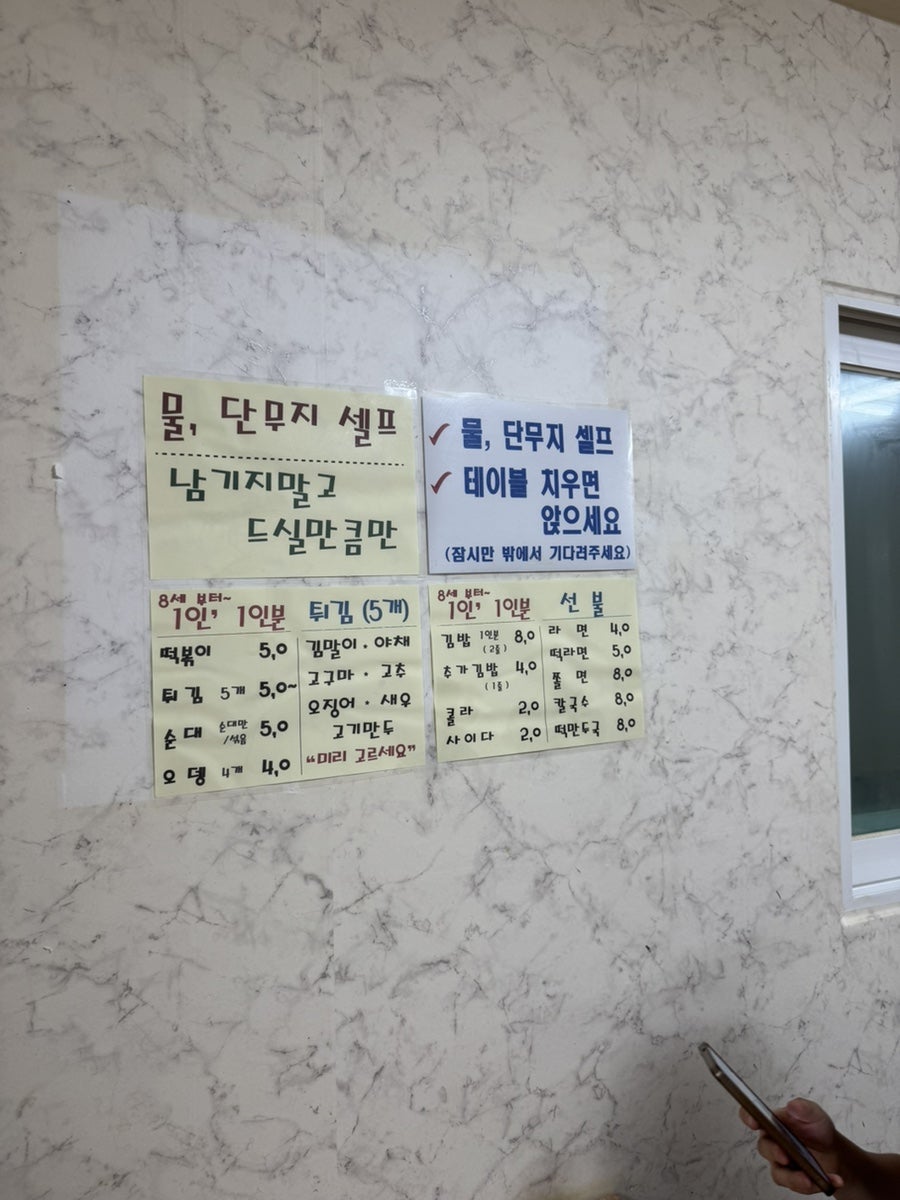 물, 단무지 셀프
남기지말고
드실만큼만
✓ 물, 단무지 셀프
✓ 테이블 치우면
앉으세요
(잠시만 밖에서 기다려주세요)
8세 부터~
1인, 1인분
떡볶이 5,0
튀김 5개 5,0~
순대 순대만/섞음 5,0
오뎅 4개 4,0
튀김 (5개)
김말이 · 야채
고구마 · 고추
오징어 · 새우
고기만두
"미리 고르세요"
8세 부터~
1인, 1인분 선불
김밥 1인분 (2줄) 8,0
추가김밥 (1줄) 4,0
콜라 2,0
사이다 2,0
라면 4,0
떡라면 5,0
쫄면 8,0
칼국수 8,0
떡만두국 8,0